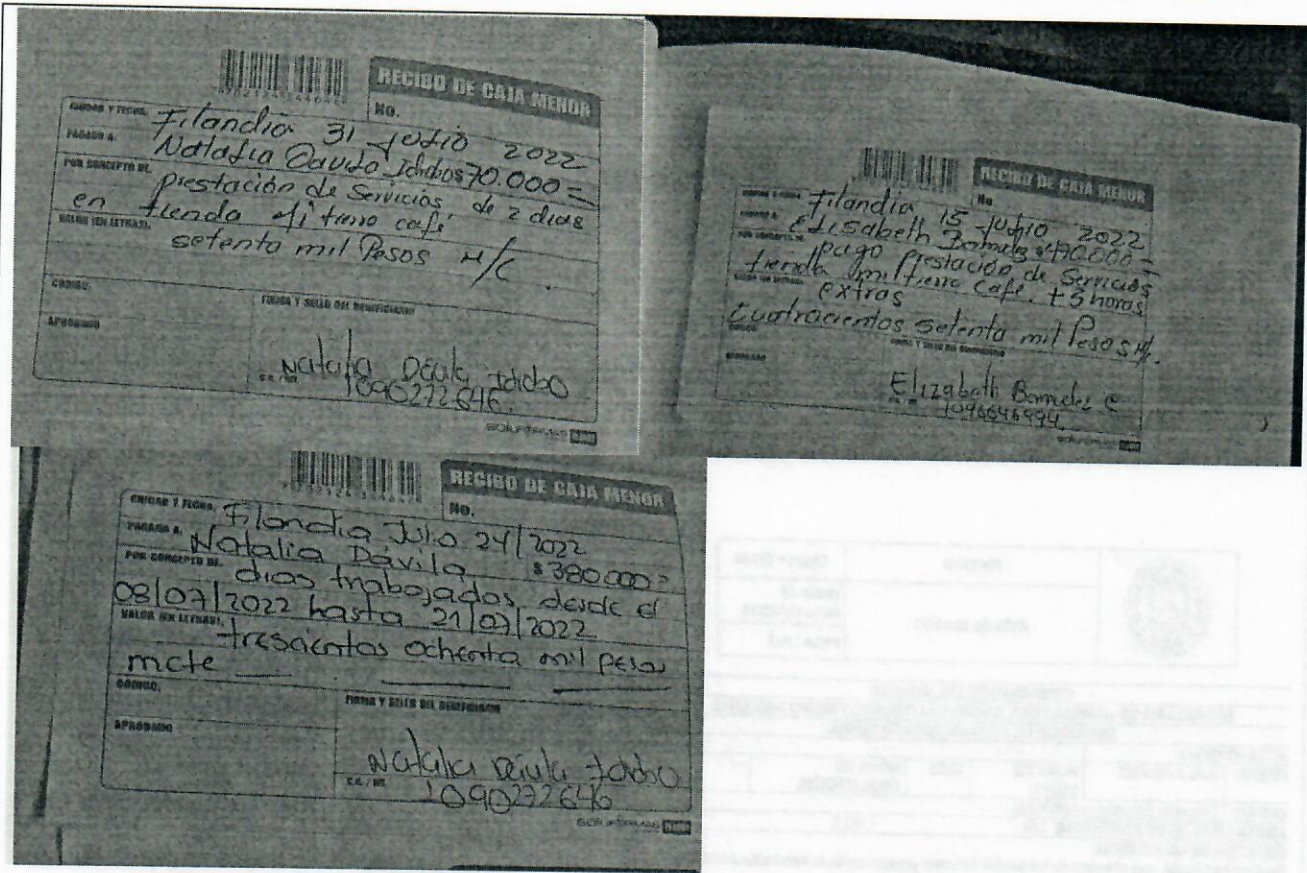 RECIBO DE CAJA MENOR
No.
CIUDAD Y FECHA. Filandia 31 Julio 2022
PAGADO A. Natalia Davila $70.000=
POR CONCEPTO DE. prestación de Servicios de 2 dias
en tienda Mi tierra café
VALOR (EN LETRAS).
setenta mil Pesos M/C.
CODIGO.
FIRMA Y SELLO DEL BENEFICIARIO
APROBADO
Natalia Dávila
C.C. / NIT. 1090272646
SOLUFORMAS
RECIBO DE CAJA MENOR
No
CIUDAD Y FECHA. Filandia 15 Julio 2022
PAGADO A. Elisabeth $470.000=
POR CONCEPTO DE. pago Prestación de Servicios
tienda mi tierra Café. + 5 horas
VALOR (EN LETRAS). extras
Cuatrocientos setenta mil Pesos M/.
CODIGO.
FIRMA Y SELLO DEL BENEFICIARIO
APROBADO
Elizabeth
SOLUFORMAS
RECIBO DE CAJA MENOR
No.
CIUDAD Y FECHA. Filandia Julio 24/2022
PAGADO A. Natalia Dávila $380.000=
POR CONCEPTO DE. dias trabajados desde el
08/07/2022 hasta 21/07/2022
VALOR (EN LETRAS).
trescientos ochenta mil pesos
mcte
CODIGO.
FIRMA Y SELLO DEL BENEFICIARIO
APROBADO
Natalia Dávila
C.C. / NIT. 1090272646
SOLUFORMAS